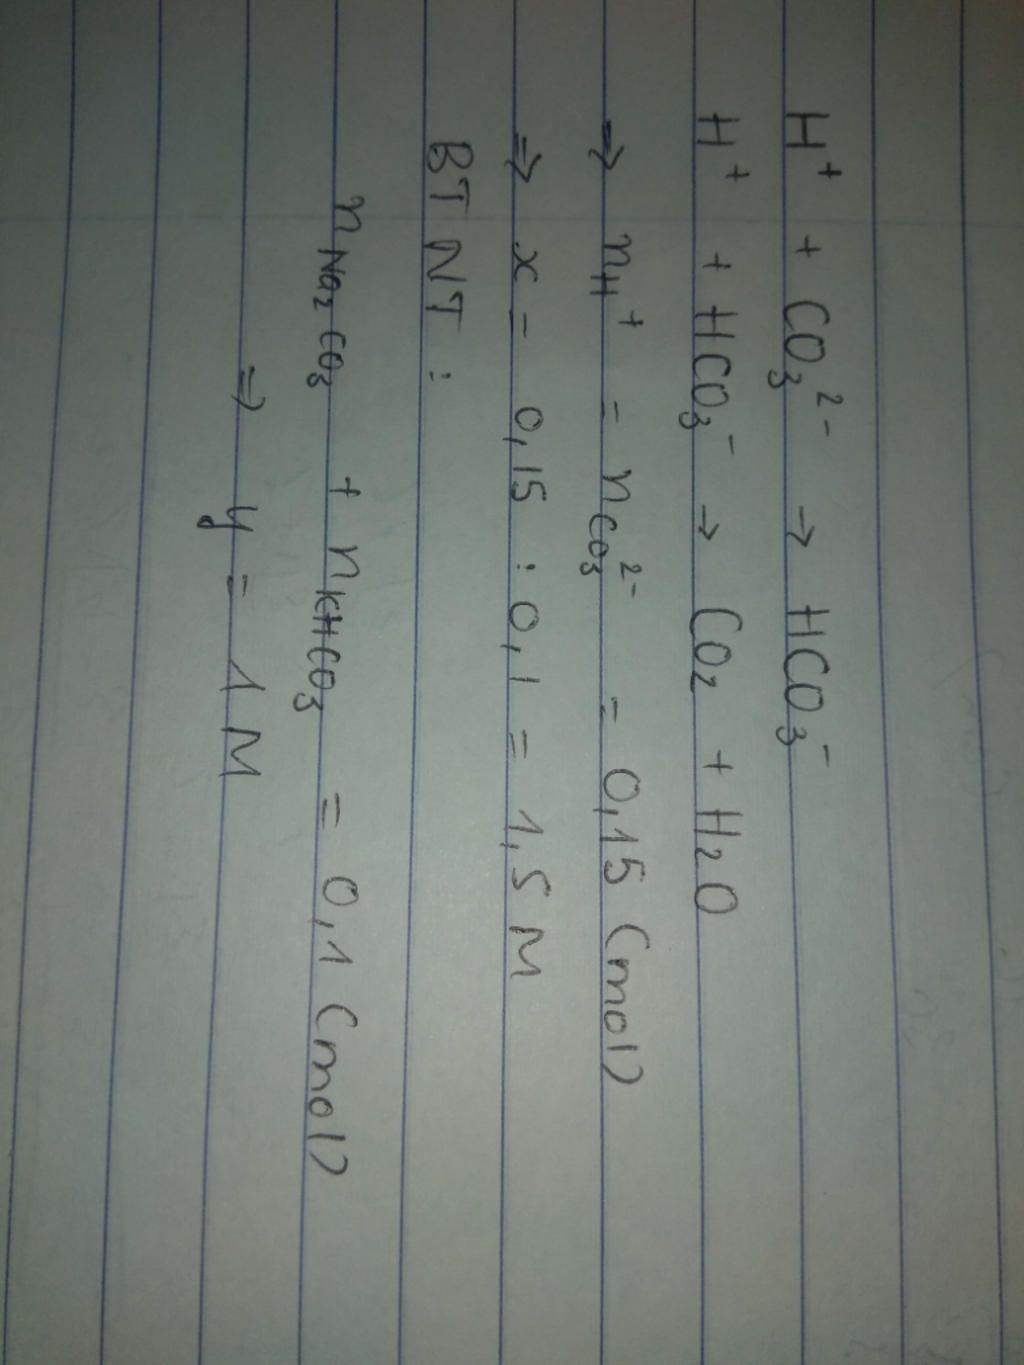 H⁺ + CO₃²⁻ → HCO₃⁻
H⁺ + HCO₃⁻ → CO₂ + H₂O
⇒ nH⁺ = nCO₃²⁻ = 0,15 (mol)
⇒ x = 0,15 : 0,1 = 1,5 M
BTNT :
nNa₂CO₃ + nKHCO₃ = 0,1 (mol)
⇒ y = 1 M